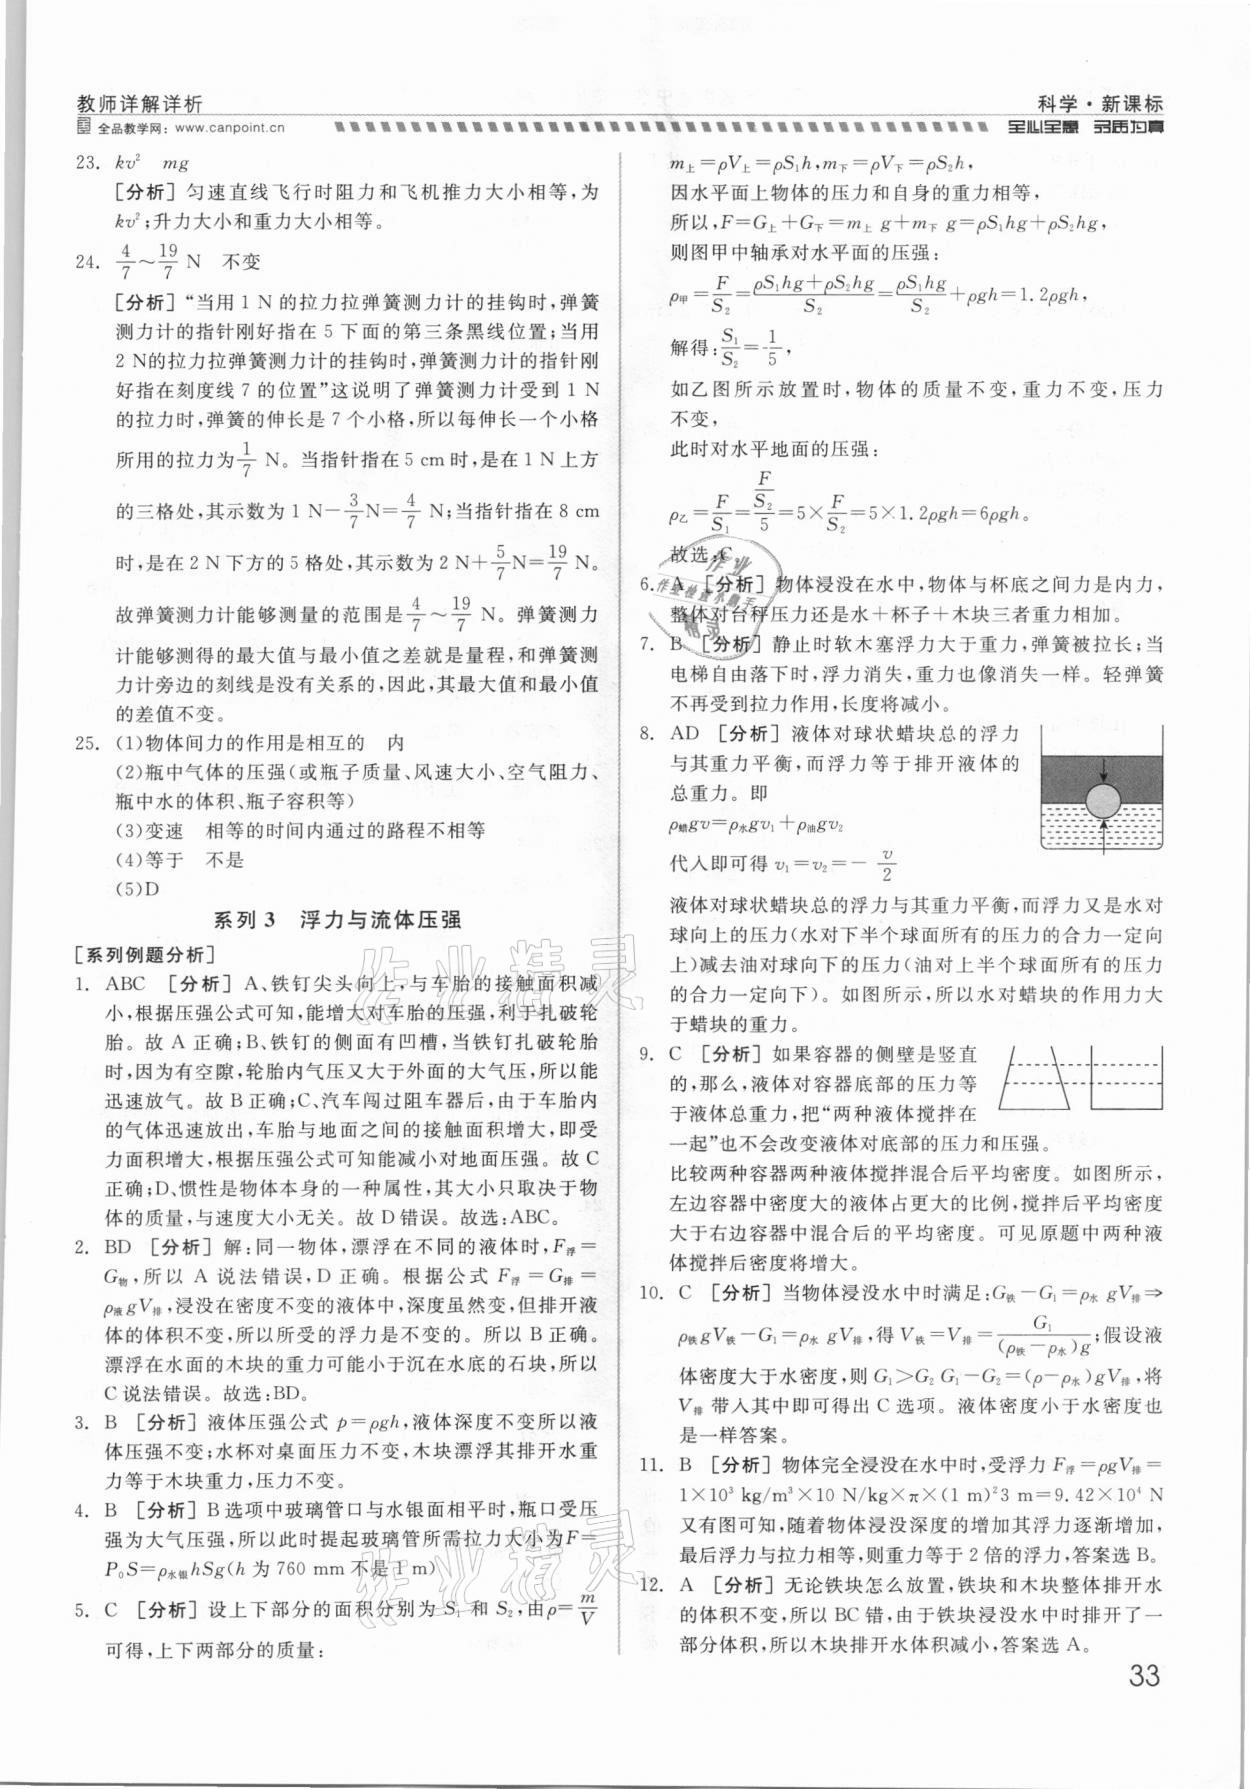 教师详解详析
全品教学网：www.canpoint.cn
科学·新课标
全心全意 品质为真
23. kv² mg
[分析] 匀速直线飞行时阻力和飞机推力大小相等，为
kv²；升力大小和重力大小相等。
24. 4/7～19/7 N 不变
[分析]“当用 1 N 的拉力拉弹簧测力计的挂钩时，弹簧
测力计的指针刚好指在 5 下面的第三条黑线位置；当用
2 N的拉力拉弹簧测力计的挂钩时，弹簧测力计的指针刚
好指在刻度线 7 的位置”这说明了弹簧测力计受到 1 N
的拉力时，弹簧的伸长是 7 个小格，所以每伸长一个小格
所用的拉力为1/7 N。当指针指在 5 cm 时，是在 1 N 上方
的三格处，其示数为 1 N－3/7N＝4/7 N；当指针指在 8 cm
时，是在 2 N 下方的 5 格处，其示数为 2 N＋5/7N＝19/7 N。
故弹簧测力计能够测量的范围是4/7～19/7 N。弹簧测力
计能够测得的最大值与最小值之差就是量程，和弹簧测
力计旁边的刻线是没有关系的，因此，其最大值和最小值
的差值不变。
25. (1)物体间力的作用是相互的 内
(2)瓶中气体的压强(或瓶子质量、风速大小、空气阻力、
瓶中水的体积、瓶子容积等)
(3)变速 相等的时间内通过的路程不相等
(4)等于 不是
(5)D
系列 3 浮力与流体压强
[系列例题分析]
1. ABC [分析] A、铁钉尖头向上，与车胎的接触面积减
小，根据压强公式可知，能增大对车胎的压强，利于扎破轮
胎。故 A 正确；B、铁钉的侧面有凹槽，当铁钉扎破轮胎
时，因为有空隙，轮胎内气压又大于外面的大气压，所以能
迅速放气。故 B 正确；C、汽车闯过阻车器后，由于车胎内
的气体迅速放出，车胎与地面之间的接触面积增大，即受
力面积增大，根据压强公式可知能减小对地面压强。故 C
正确；D、惯性是物体本身的一种属性，其大小只取决于物
体的质量，与速度大小无关。故 D 错误。故选：ABC。
2. BD [分析] 解：同一物体，漂浮在不同的液体时，F浮＝
G物，所以 A 说法错误，D 正确。根据公式 F浮＝G排＝
ρ液gV排，浸没在密度不变的液体中，深度虽然变，但排开液
体的体积不变，所以所受的浮力是不变的。所以 B 正确。
漂浮在水面的木块的重力可能小于沉在水底的石块，所以
C 说法错误。故选：BD。
3. B [分析] 液体压强公式 p＝ρgh，液体深度不变所以液
体压强不变；水杯对桌面压力不变，木块漂浮其排开水重
力等于木块重力，压力不变。
4. B [分析] B 选项中玻璃管口与水银面相平时，瓶口受压
强为大气压强，所以此时提起玻璃管所需拉力大小为F＝
P₀S＝ρ水银hSg(h 为 760 mm 不是 1 m)
5. C [分析] 设上下部分的面积分别为 S₁ 和 S₂，由ρ＝m/V
可得，上下两部分的质量：
m上＝ρV上＝ρS₁h，m下＝ρV下＝ρS₂h，
因水平面上物体的压力和自身的重力相等，
所以，F＝G上＋G下＝m上 g＋m下 g＝ρS₁hg＋ρS₂hg，
则图甲中轴承对水平面的压强：
ρ甲＝F/S₂＝(ρS₁hg＋ρS₂hg)/S₂＝ρS₁hg/S₂＋ρgh＝1.2ρgh，
解得：S₁/S₂＝1/5，
如乙图所示放置时，物体的质量不变，重力不变，压力
不变，
此时对水平地面的压强：
ρ乙＝F/S₁＝F/(S₂/5)＝5×F/S₂＝5×1.2ρgh＝6ρgh。
故选：C
6. A [分析] 物体浸没在水中，物体与杯底之间力是内力，
整体对台秤压力还是水＋杯子＋木块三者重力相加。
7. B [分析] 静止时软木塞浮力大于重力，弹簧被拉长；当
电梯自由落下时，浮力消失，重力也像消失一样。轻弹簧
不再受到拉力作用，长度将减小。
8. AD [分析] 液体对球状蜡块总的浮力
与其重力平衡，而浮力等于排开液体的
总重力。即
ρ蜡gv＝ρ水gv₁＋ρ油gv₂
代入即可得 v₁＝v₂＝－ v/2
液体对球状蜡块总的浮力与其重力平衡，而浮力是水对
球向上的压力(水对下半个球面所有的压力的合力一定向
上)减去油对球向下的压力(油对上半个球面所有的压力
的合力一定向下)。如图所示，所以水对蜡块的作用力大
于蜡块的重力。
9. C [分析] 如果容器的侧壁是竖直
的，那么，液体对容器底部的压力等
于液体总重力，把“两种液体搅拌在
一起”也不会改变液体对底部的压力和压强。
比较两种容器两种液体搅拌混合后平均密度。如图所示，
左边容器中密度大的液体占更大的比例，搅拌后平均密度
大于右边容器中混合后的平均密度。可见原题中两种液
体搅拌后密度将增大。
10. C [分析] 当物体浸没水中时满足：G铁－G₁＝ρ水 gV排⇒
ρ铁gV铁－G₁＝ρ水 gV排，得 V铁＝V排＝G₁/(ρ铁－ρ水)g；假设液
体密度大于水密度，则 G₁＞G₂ G₁－G₂＝(ρ－ρ水)gV排，将
V排 带入其中即可得出 C 选项。液体密度小于水密度也
是一样答案。
11. B [分析] 物体完全浸没在水中时，受浮力 F浮＝ρgV排＝
1×10³ kg/m³×10 N/kg×π×(1 m)²3 m＝9.42×10⁴ N
又有图可知，随着物体浸没深度的增加其浮力逐渐增加，
最后浮力与拉力相等，则重力等于 2 倍的浮力，答案选 B。
12. A [分析] 无论铁块怎么放置，铁块和木块整体排开水
的体积不变，所以 BC 错，由于铁块浸没水中时排开了一
部分体积，所以木块排开水体积减小，答案选 A。
33
作业精灵
作业精灵
作业
作业检查小助手
精灵